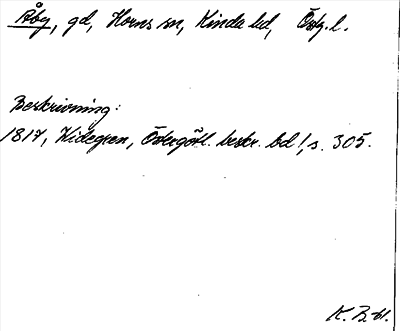 Åby, gd, Horns sn, Kinda hd, Östg. l.
Beskrivning:
1817, Widegren, Östergötl. beskr. bd 1, s. 305.
K. B-bl.